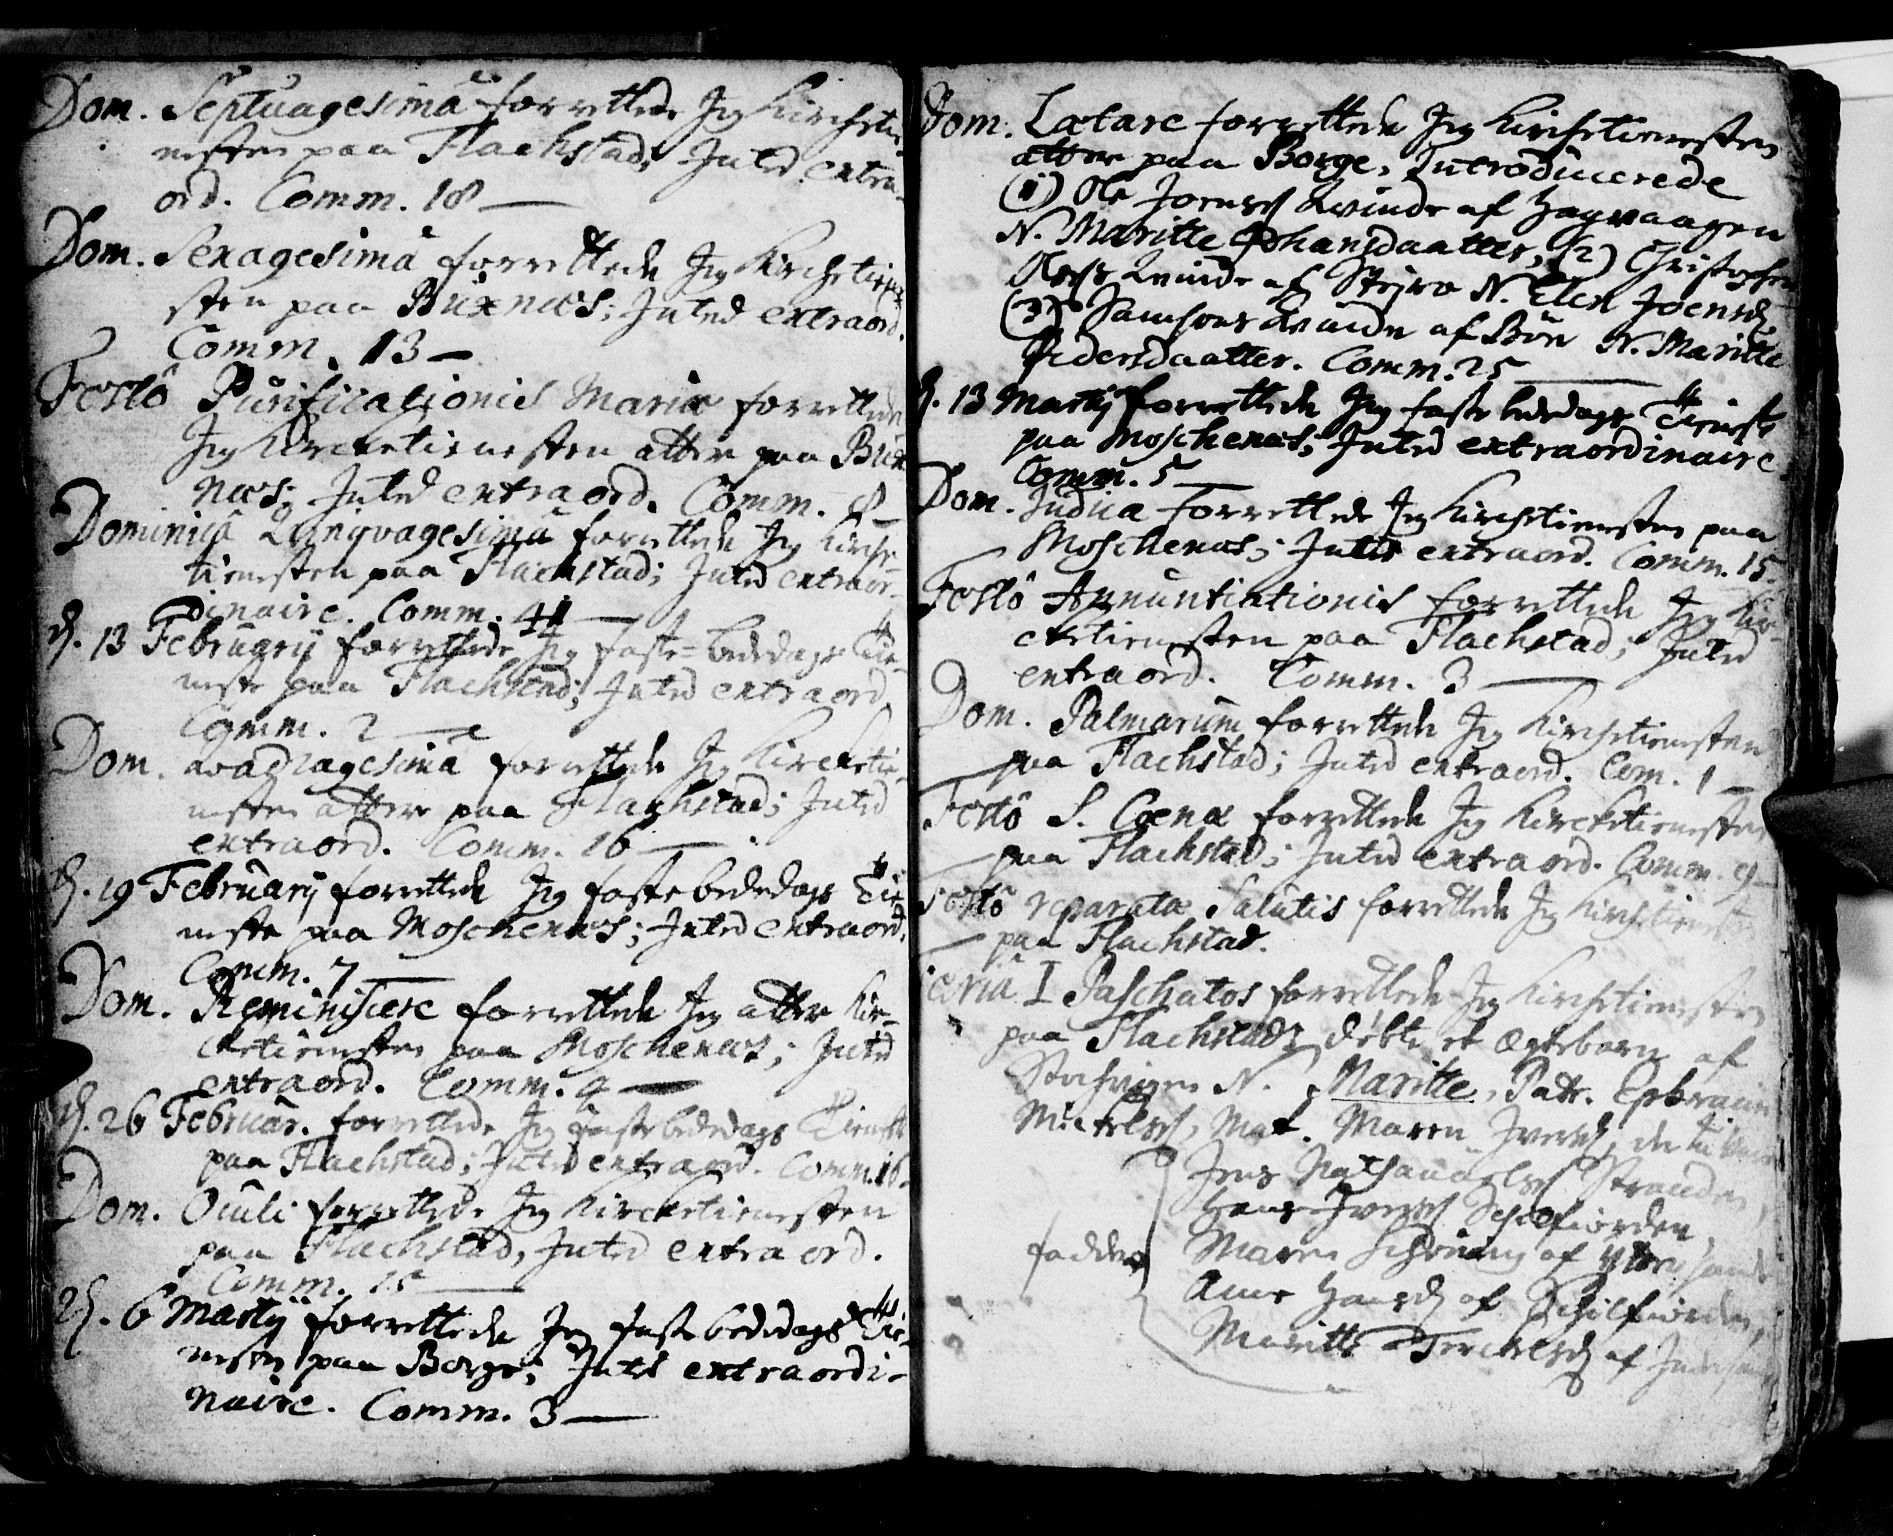 Dom. Septuagesimâ forrettede Jeg Kirchetie-
nesten paa Flachstad; Inted extra-
ord. Comm. 18 —
Dom. Sexagesimâ forrettede Jeg Kirchetiene-
sten paa Buxnæs; Inted extraord.
Comm. 13 —
Festô Purificationis Mariæ forrettede
Jeg Kircketienesten atter paa Bux
næs; Inted extraord. Comm. 8 —
Dominicâ Qvinqvagesimâ forrettede Jeg Kirche-
tienesten paa Flachstad; Inted extraor-
dinaire. Comm. 41 —
d. 13 Februarij forrettede Jeg faste-bededags Tie-
neste paa Flachstad; Inted extraord.
Comm. 2 —
Dom. Qvadragesimâ forrettede Jeg Kircketie-
nesten atter paa Flachstad; Inted
extraord. Comm. 16 —
d. 19 Februarij forrettede Jeg fastebededags Tie-
neste paa Moschenæs; Inted extraord.
Comm. 7 —
Dom. Reminiscere forrettede Jeg atter Kir-
cketienesten paa Moschenæs; Inted
extraord. Comm. 4 —
d. 26 Februar. forrettede Jeg fastebededags Tieneste
paa Flachstad; Inted extraord. Comm. 16.
Dom. Oculi forrettede Jeg Kircketienesten
paa Flachstad, Inted extraord.
Comm. 15 —
d. 6 Martij forrettede Jeg fastebededags Tie-
nesten paa Borge; Inted extraordi-
naire. Comm. 3 —
Dom. Lætare forrettede Jeg Kirchetienesten
atter paa Borge, Introducerede
(1) Ole Joenses Qvinde af Hagvaagen
N. Maritte Johansdaatter, (2) Christopher
Olses Qvinde af Stejro N. Elen Joensd.
(3) Samsons Qvinde af Böe N. Maritte
Pedersdaatter. Comm. 25 —
d. 13 Martij forrettede Jeg faste bededags Tieneste
paa Moschenæs; Inted extraordinaire
Comm. 5 —
Dom. Judica forrettede Jeg Kirchetienesten paa
Moschenæs; Inted extraord. Comm. 15.
Festô Annuntiationis forrettede Jeg Kir-
cketienesten paa Flachstad; Inted
extraord. Comm. 3 —
Dom. Palmarum forrettede Jeg Kirchetienesten
paa Flachstad; Inted extraord. Com. 1 —
Festô S. Coenæ forrettede Jeg Kircketienesten
paa Flachstad; Inted extraord. Comm. 9 —
Festô reparatæ Salutis forrettede Jeg Kirchetienesten
paa Flachstad.
Feriâ I Paschatos forrettede Jeg Kirchetienesten
paa Flachstad, döbte et ægtebarn af
N. Maritte, Patr. Ephraim
Mickelss, Mat. Maren Iversd,
Jens Nathanaelss Stranden,
Hans Iverss Schelfiorden,
faddere Maren Schöning af Yttersand
Anne Hansd af Schelfiorden,
Maritte Terckelsd af